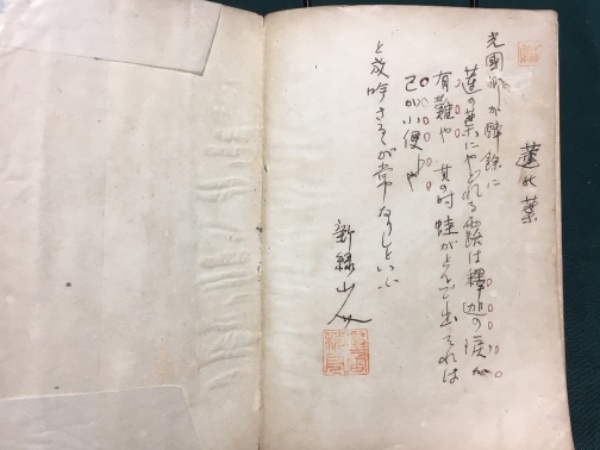 蓮の葉
光圀卿が酔餘に
蓮の葉にやどれる露は釋迦の涙か
有難や 其の時蛙がとんで出それは
己が小便
と放吟さるが常なりしといふ
新緑山人